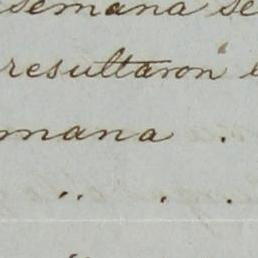 semana se
resultaron
mana .
" . .
"